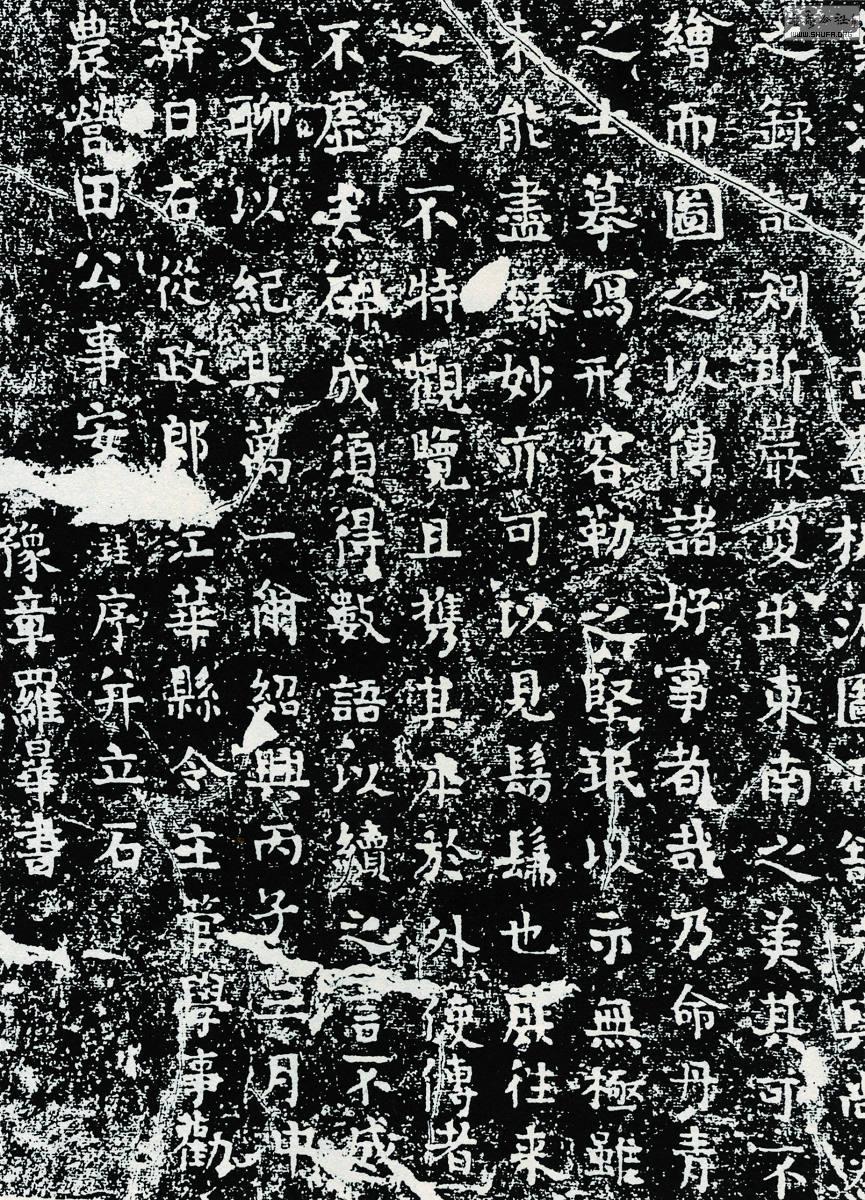 之録記矧斯巖夐出東南之美其可不
繪而圖之以傳諸好事者哉乃命丹青
之士摹寫形容勒之堅珉以示無極雖
未能盡臻妙亦可以見髣髴也庶往来
之人不特觀覽且携其本於外使傳者
不虛矣碑成須得數語以續之言不成
文聊以紀其萬一爾紹興丙子三月中
幹日右從政郎江華縣令主管學事勸
農營田公事安珪序并立石
豫章羅曅書
WWW.SHUFA.ORG